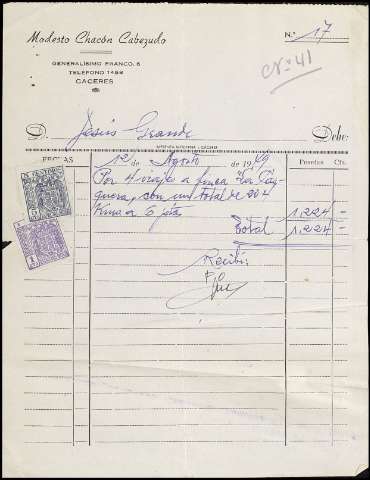 Modesto Chacón Cabezudo
N.º 17
GENERALÍSIMO FRANCO, 6
TELÉFONO 1498
CÁCERES
Nº 41
D. Jesús Grande Debe:
FECHAS 12 de Agosto de 19 Pesetas Cts.
Por 4 viajes a finca "La
con un total de 204
Kms a 6 pts 1.224 -
Total 1.224 -
Recibí: